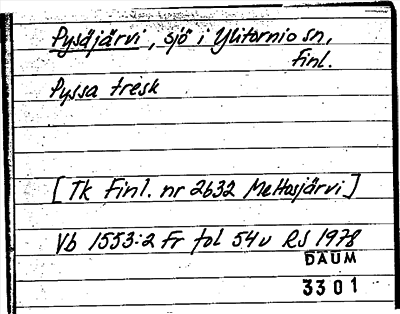 Pysäjärvi, sjö i Ylitornio sn,
Finl.
Pyssa tresk
[Tk Finl. nr 2632 Meltosjärvi]
Vb 1553:2 Fr fol 54v RS 1978
DAUM
3301